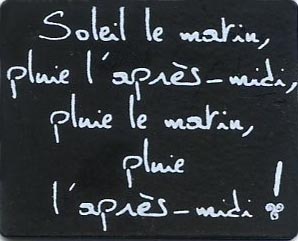 Soleil le matin,
pluie l'après-midi,
pluie le matin,
pluie
l'après-midi !